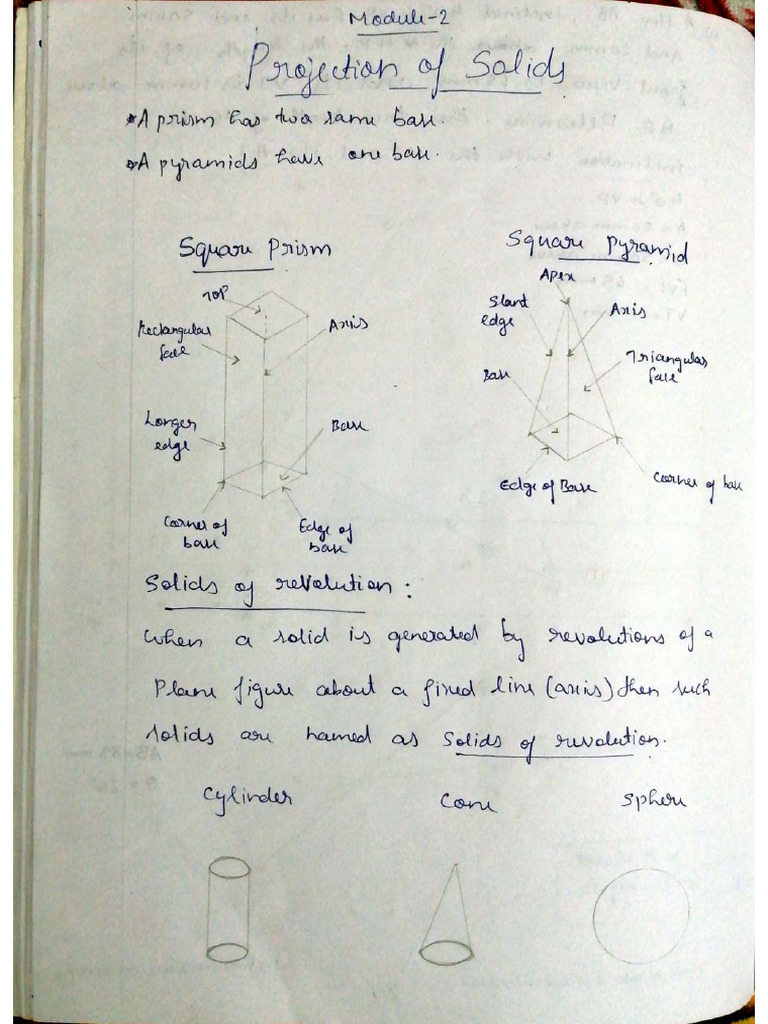 Module-2
Projection of Solids
* A prism has two same base.
* A pyramids have one base.
Square Prism
Square Pyramid
TOP
Rectangular
face
Axis
Longer
edge
Base
Corner of
base
Edge of
base
Apex
Slant
edge
Axis
Base
Triangular
face
Edge of Base
Corner of base
Solids of revolution:
When a solid is generated by revolutions of a
Plane figure about a fixed line (axis) then such
solids are named as Solids of revolution.
Cylinder
Cone
Sphere